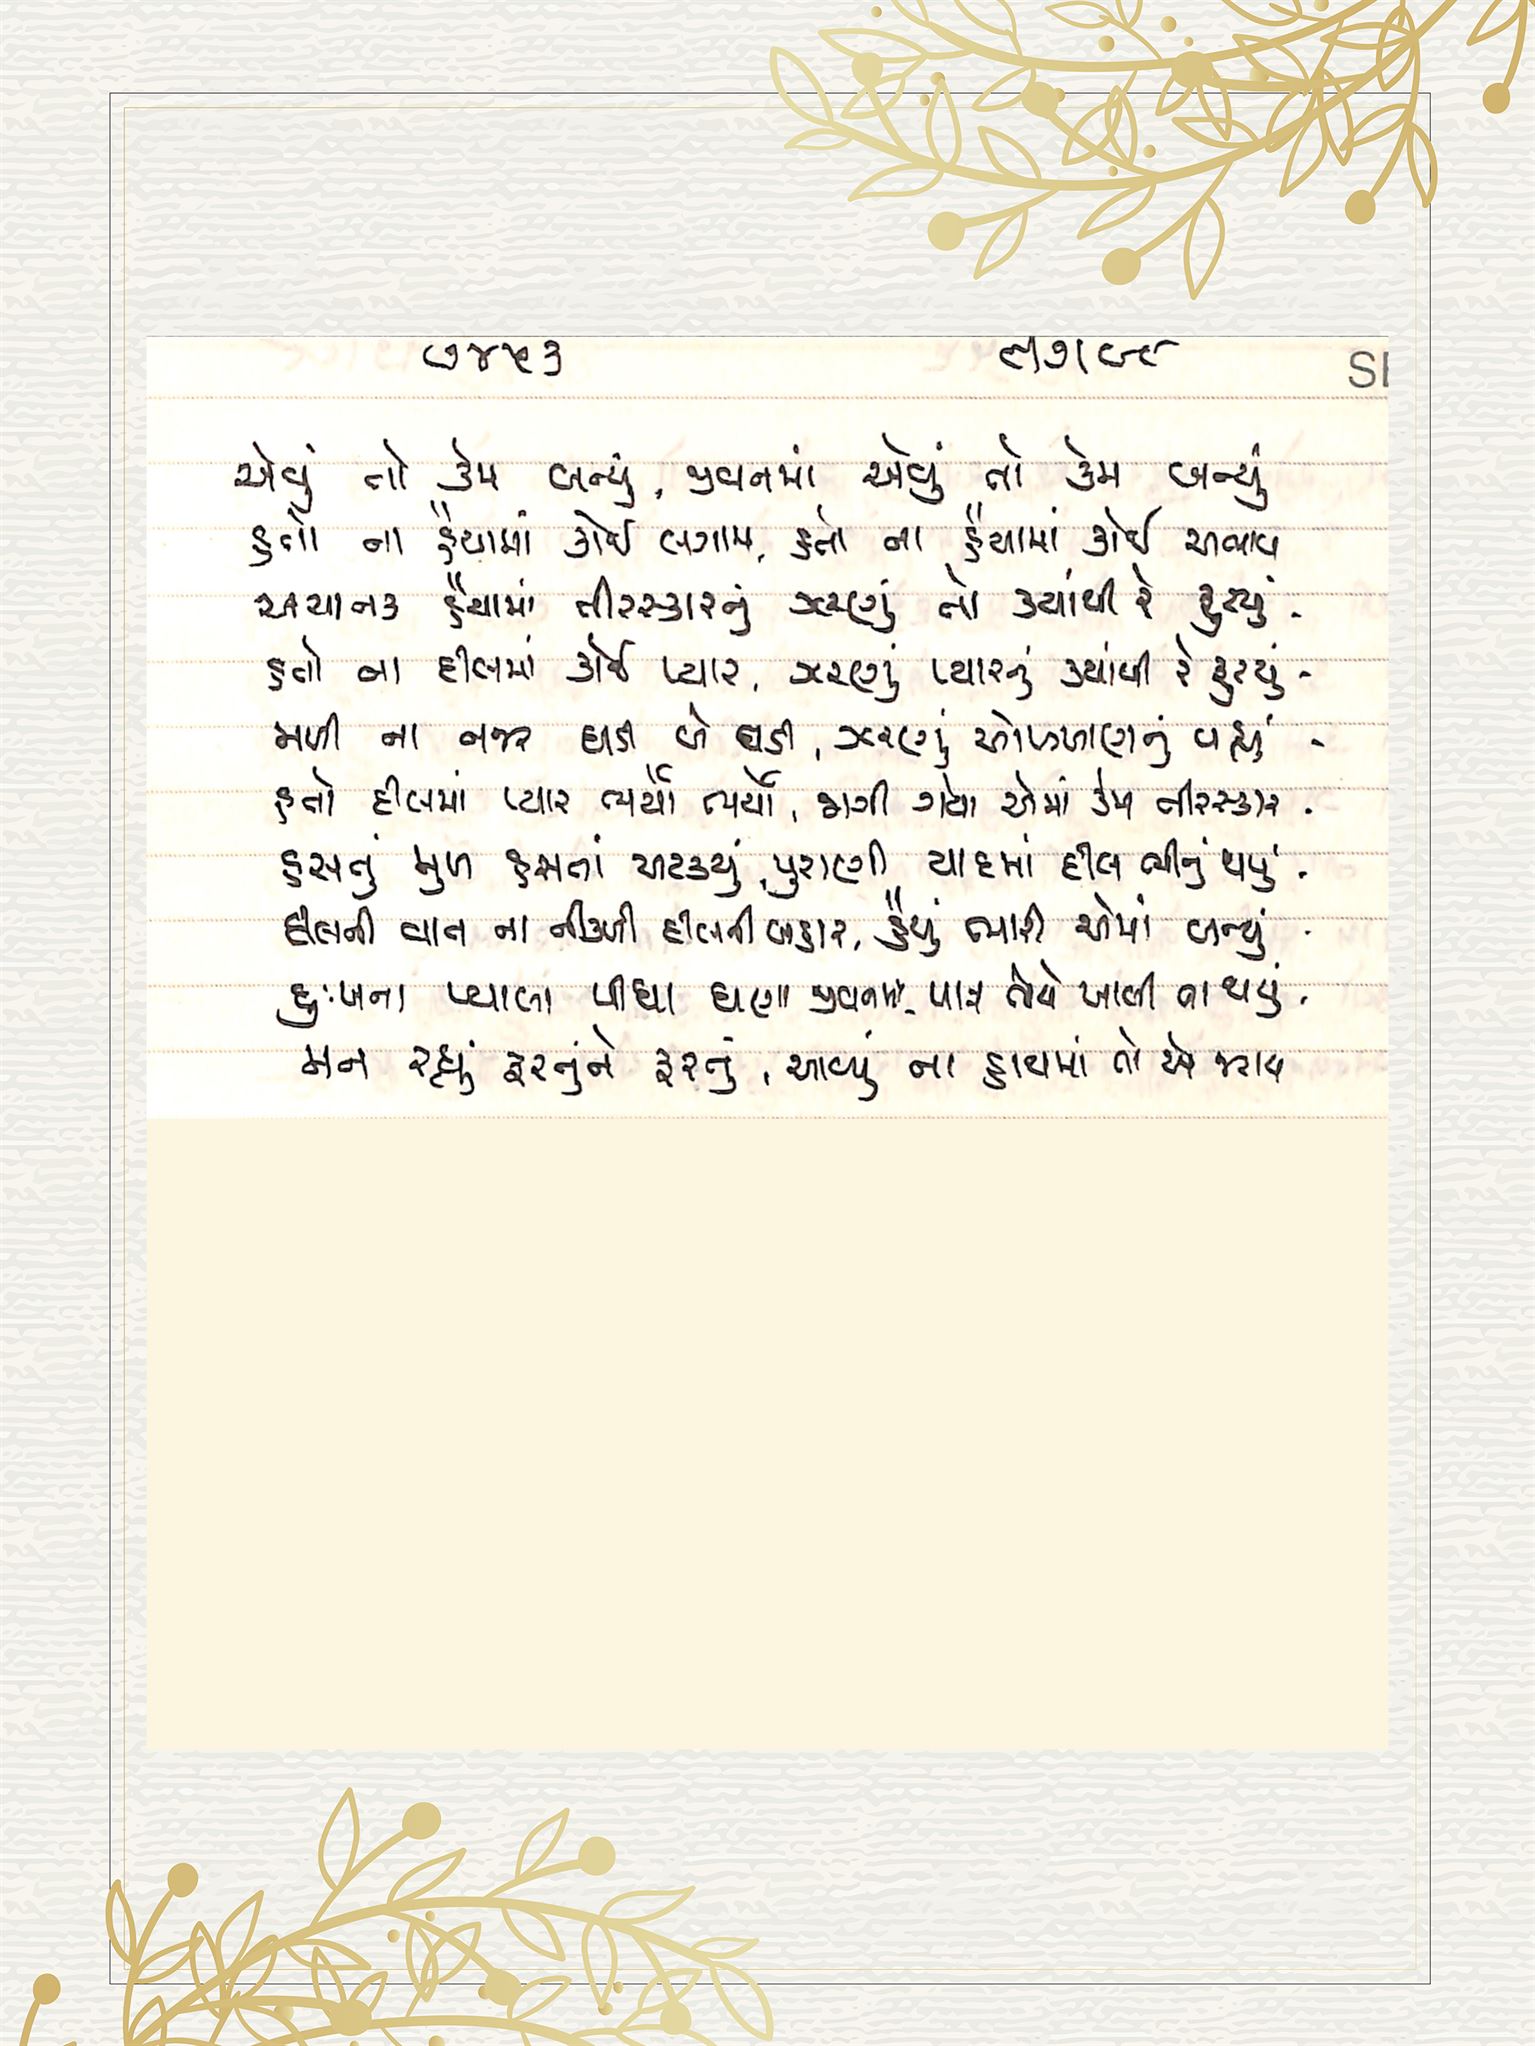 ૭૪૫૩ SI
એવું તો કેમ બન્યું, જીવનમાં એવું તો કેમ બન્યું
હતો ના હૈયામાં કોઈ લગામ, હતો ના હૈયામાં કોઈ અભાવ
અચાનક હૈયામાં તીરસ્કારનું ઝરણું તો ક્યાંથી રે ફુટયું -
હતો ના દીલમાં કોઈ પ્યાર, ઝરણું પ્યારનું ક્યાંથી રે ફુટયું -
મળી ના નજર ઘડી બે ઘડી, ઝરણું ઓળખાણનું વહ્યું -
હતો દીલમાં પ્યાર ભર્યો ભર્યો, જાગી ગયો એમાં કેમ તીરસ્કાર .
હસતું મુખ હસતાં અટકયું, પુરાણી યાદમાં દીલ ભીનું થયું .
દીલની વાત ના નીકળી દીલની બહાર, હૈયું ભારી એમાં બન્યું .
દુઃખના પ્યાલા પીધા ઘણા જીવનમાં, પાત્ર તોયે ખાલી ના થયું .
મન રહ્યું ફરતુંને ફરતું, આવ્યું ના હાથમાં તો એ જરાય